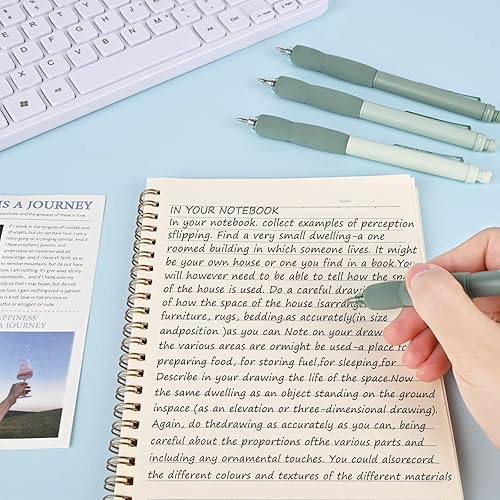 IS A JOURNEY
IN YOUR NOTEBOOK
In your notebook. collect examples of perception
sflipping. Find a very small dwelling-a one
roomed building in which someone lives. It might
be your own house or one you find in a book.You
will however need to be able to tell how the
of the house is used. Do a careful
of how the space of the house isarrang
furniture, rugs, bedding.as accurately(in size
andposition )as you can Note on your draw
the various areas are ormight be used-a place fo
preparing food, for storing fuel,for sleeping,for
Describe in your drawing the life of the space.Now
the same dwelling as an object standing on the ground
inspace.(as an elevation or three-dimensional drawing).
Again, do thedrawing as accurately as you can, being
careful about the proportions ofthe various parts and
including any ornamental touches. You could alsorecord
the different colours and textures of the different materials
APPINESS
A JOURNEY